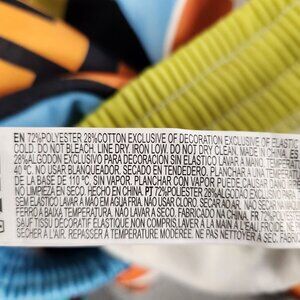 EN 72%POLYESTER 28%COTTON EXCLUSIVE OF DECORATION EXCLUSIVE OF ELASTIC
COLD. DO NOT BLEACH. LINE DRY. IRON LOW. DO NOT DRY CLEAN. MADE IN CHINA
28%ALGODON EXCLUSIVO PARA DECORACIÓN SIN ELÁSTICO LAVAR A MANO.
40 ºC. NO USAR BLANQUEADOR. SECADO EN TENDEDERO. PLANCHAR A UNA
DE LA BASE DE 110 ºC, SIN VAPOR. PLANCHAR CON VAPOR PUEDE CAUSAR
NO LIMPIEZA EN SECO. HECHO EN CHINA. PT 72%POLIESTER 28%ALGODÃO EX
SEM ELÁSTICO LAVAR À MÃO EM ÁGUA FRIA. NÃO USAR CLORO. SECAR AO AR.
FERRO A BAIXA TEMPERATURA. NÃO LAVAR A SECO. FABRICADO NA CHINA. FR 72%POLY
SAUF TISSU DÉCORATIF ÉLASTIQUE NON COMPRIS.LAVER À LA MAIN À L'EAU FROIDE.
SÉCHER À L'AIR. REPASSER À TEMPÉRATURE MODÉRÉE. NE PAS NETTOYER À SEC. FABR